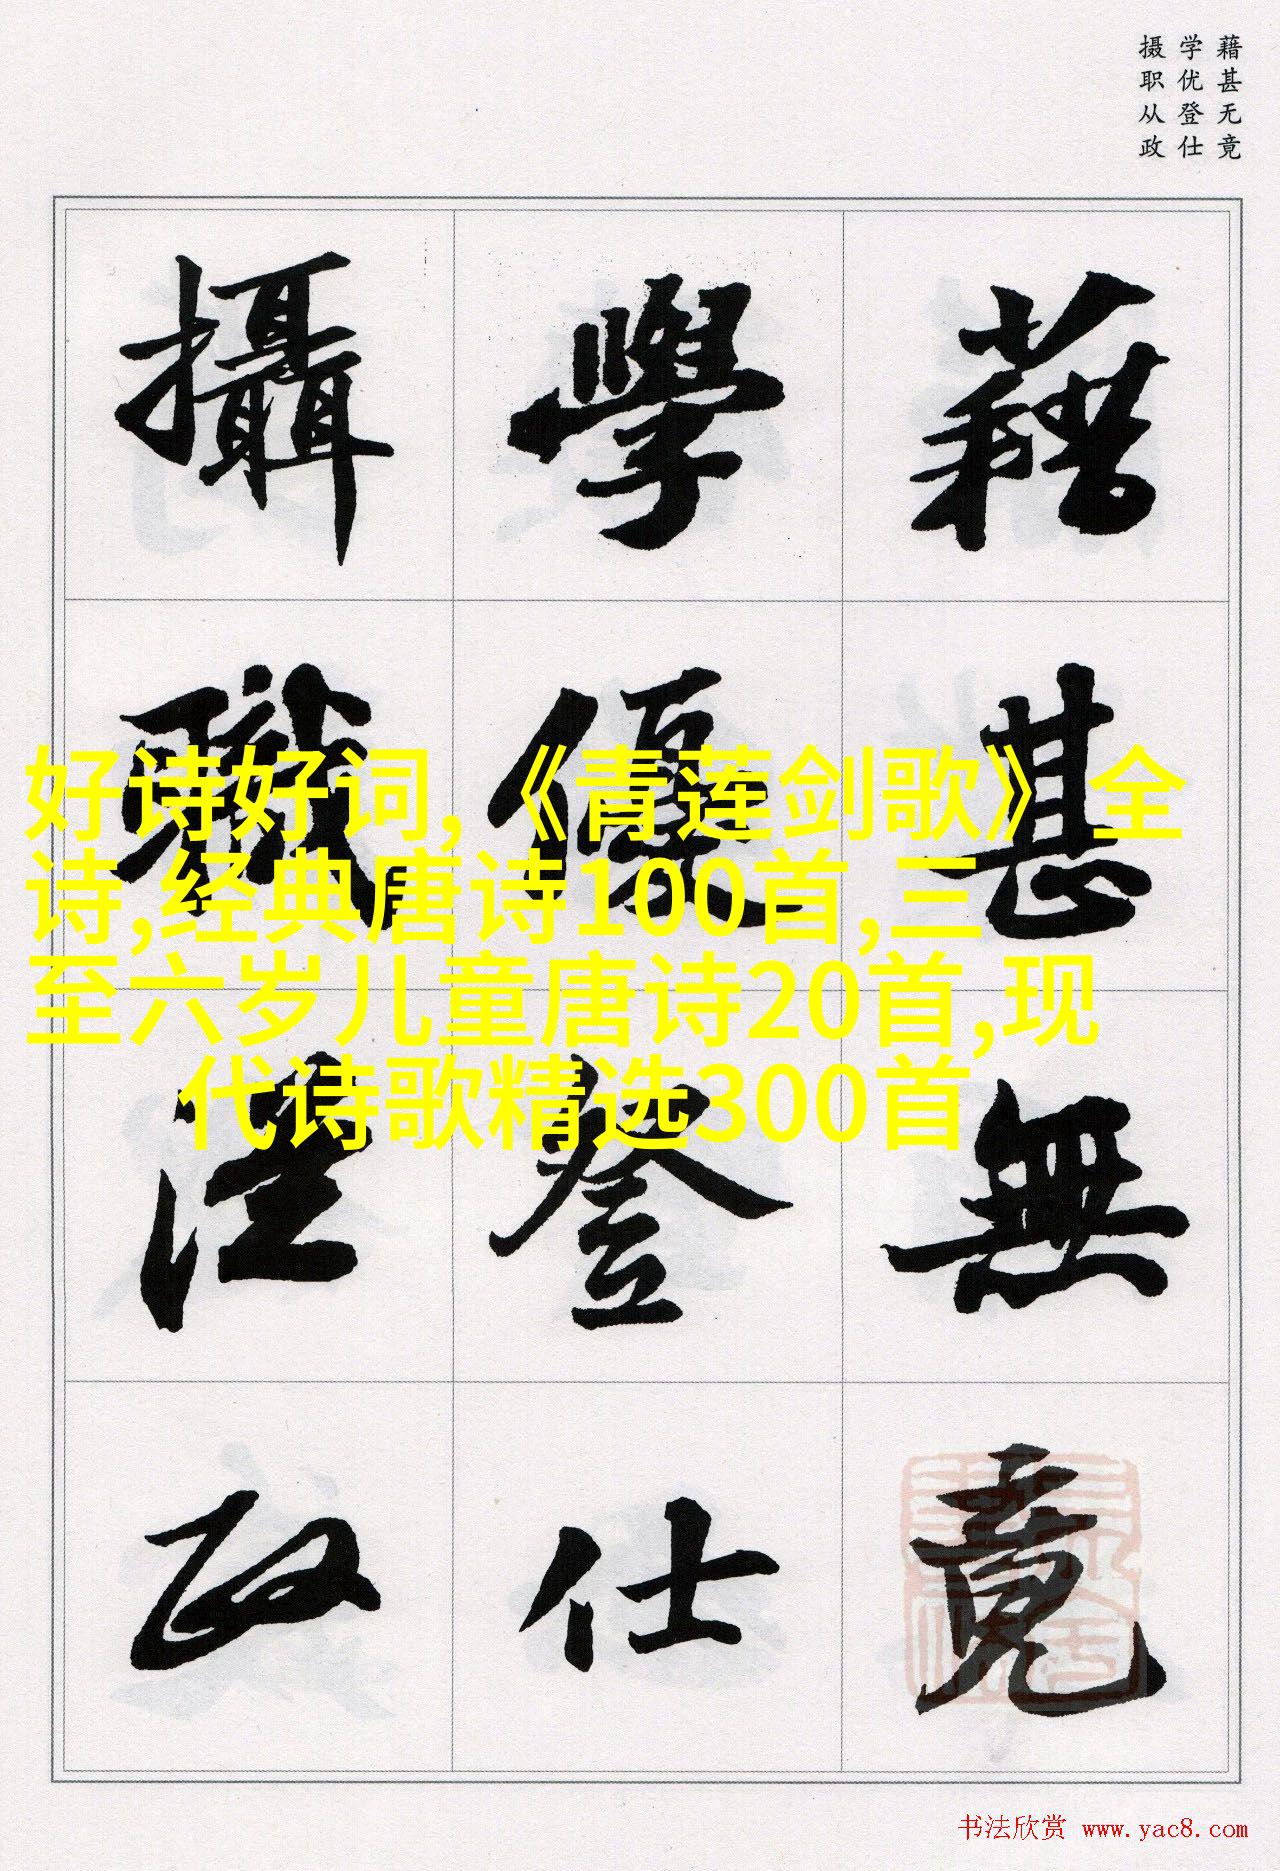 藉甚无竟
学优登仕
摄职从政
藉甚無竟
學優登仕
攝職從政
好诗好词,《青莲剑歌》全
诗,经典唐诗100首,三
至六岁儿童唐诗20首,现
代诗歌精选300首
书法欣赏 www.yac8.com